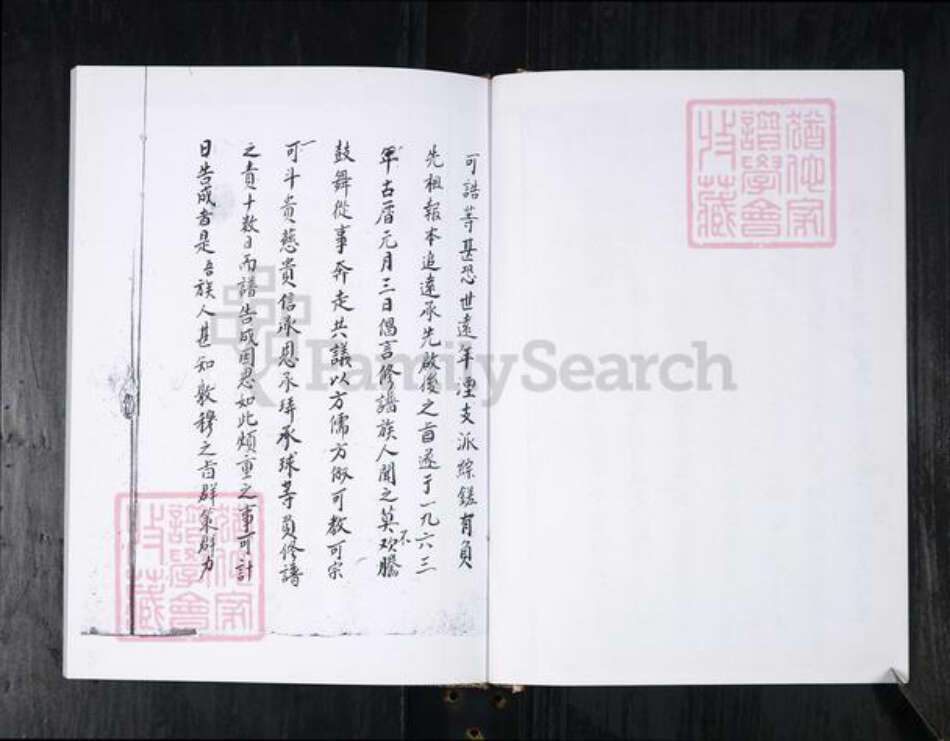 可誥等甚恐世遠年湮支派綜錯有負
先祖報本追遠承先啟後之旨遂于一九六三
年古曆元月三日倡言修譜族人聞之莫不欢騰
鼓舞從事奔走共議以方儒方俶可教可宗
可斗贵慈貴信承恩承璋承球等員修譜
之責十數日而譜告成因思如此煩重之事可計
日告成者是吾族人甚知敦穆之旨群策群力
FamilySearch
譜學會
收藏
譜學會
收藏